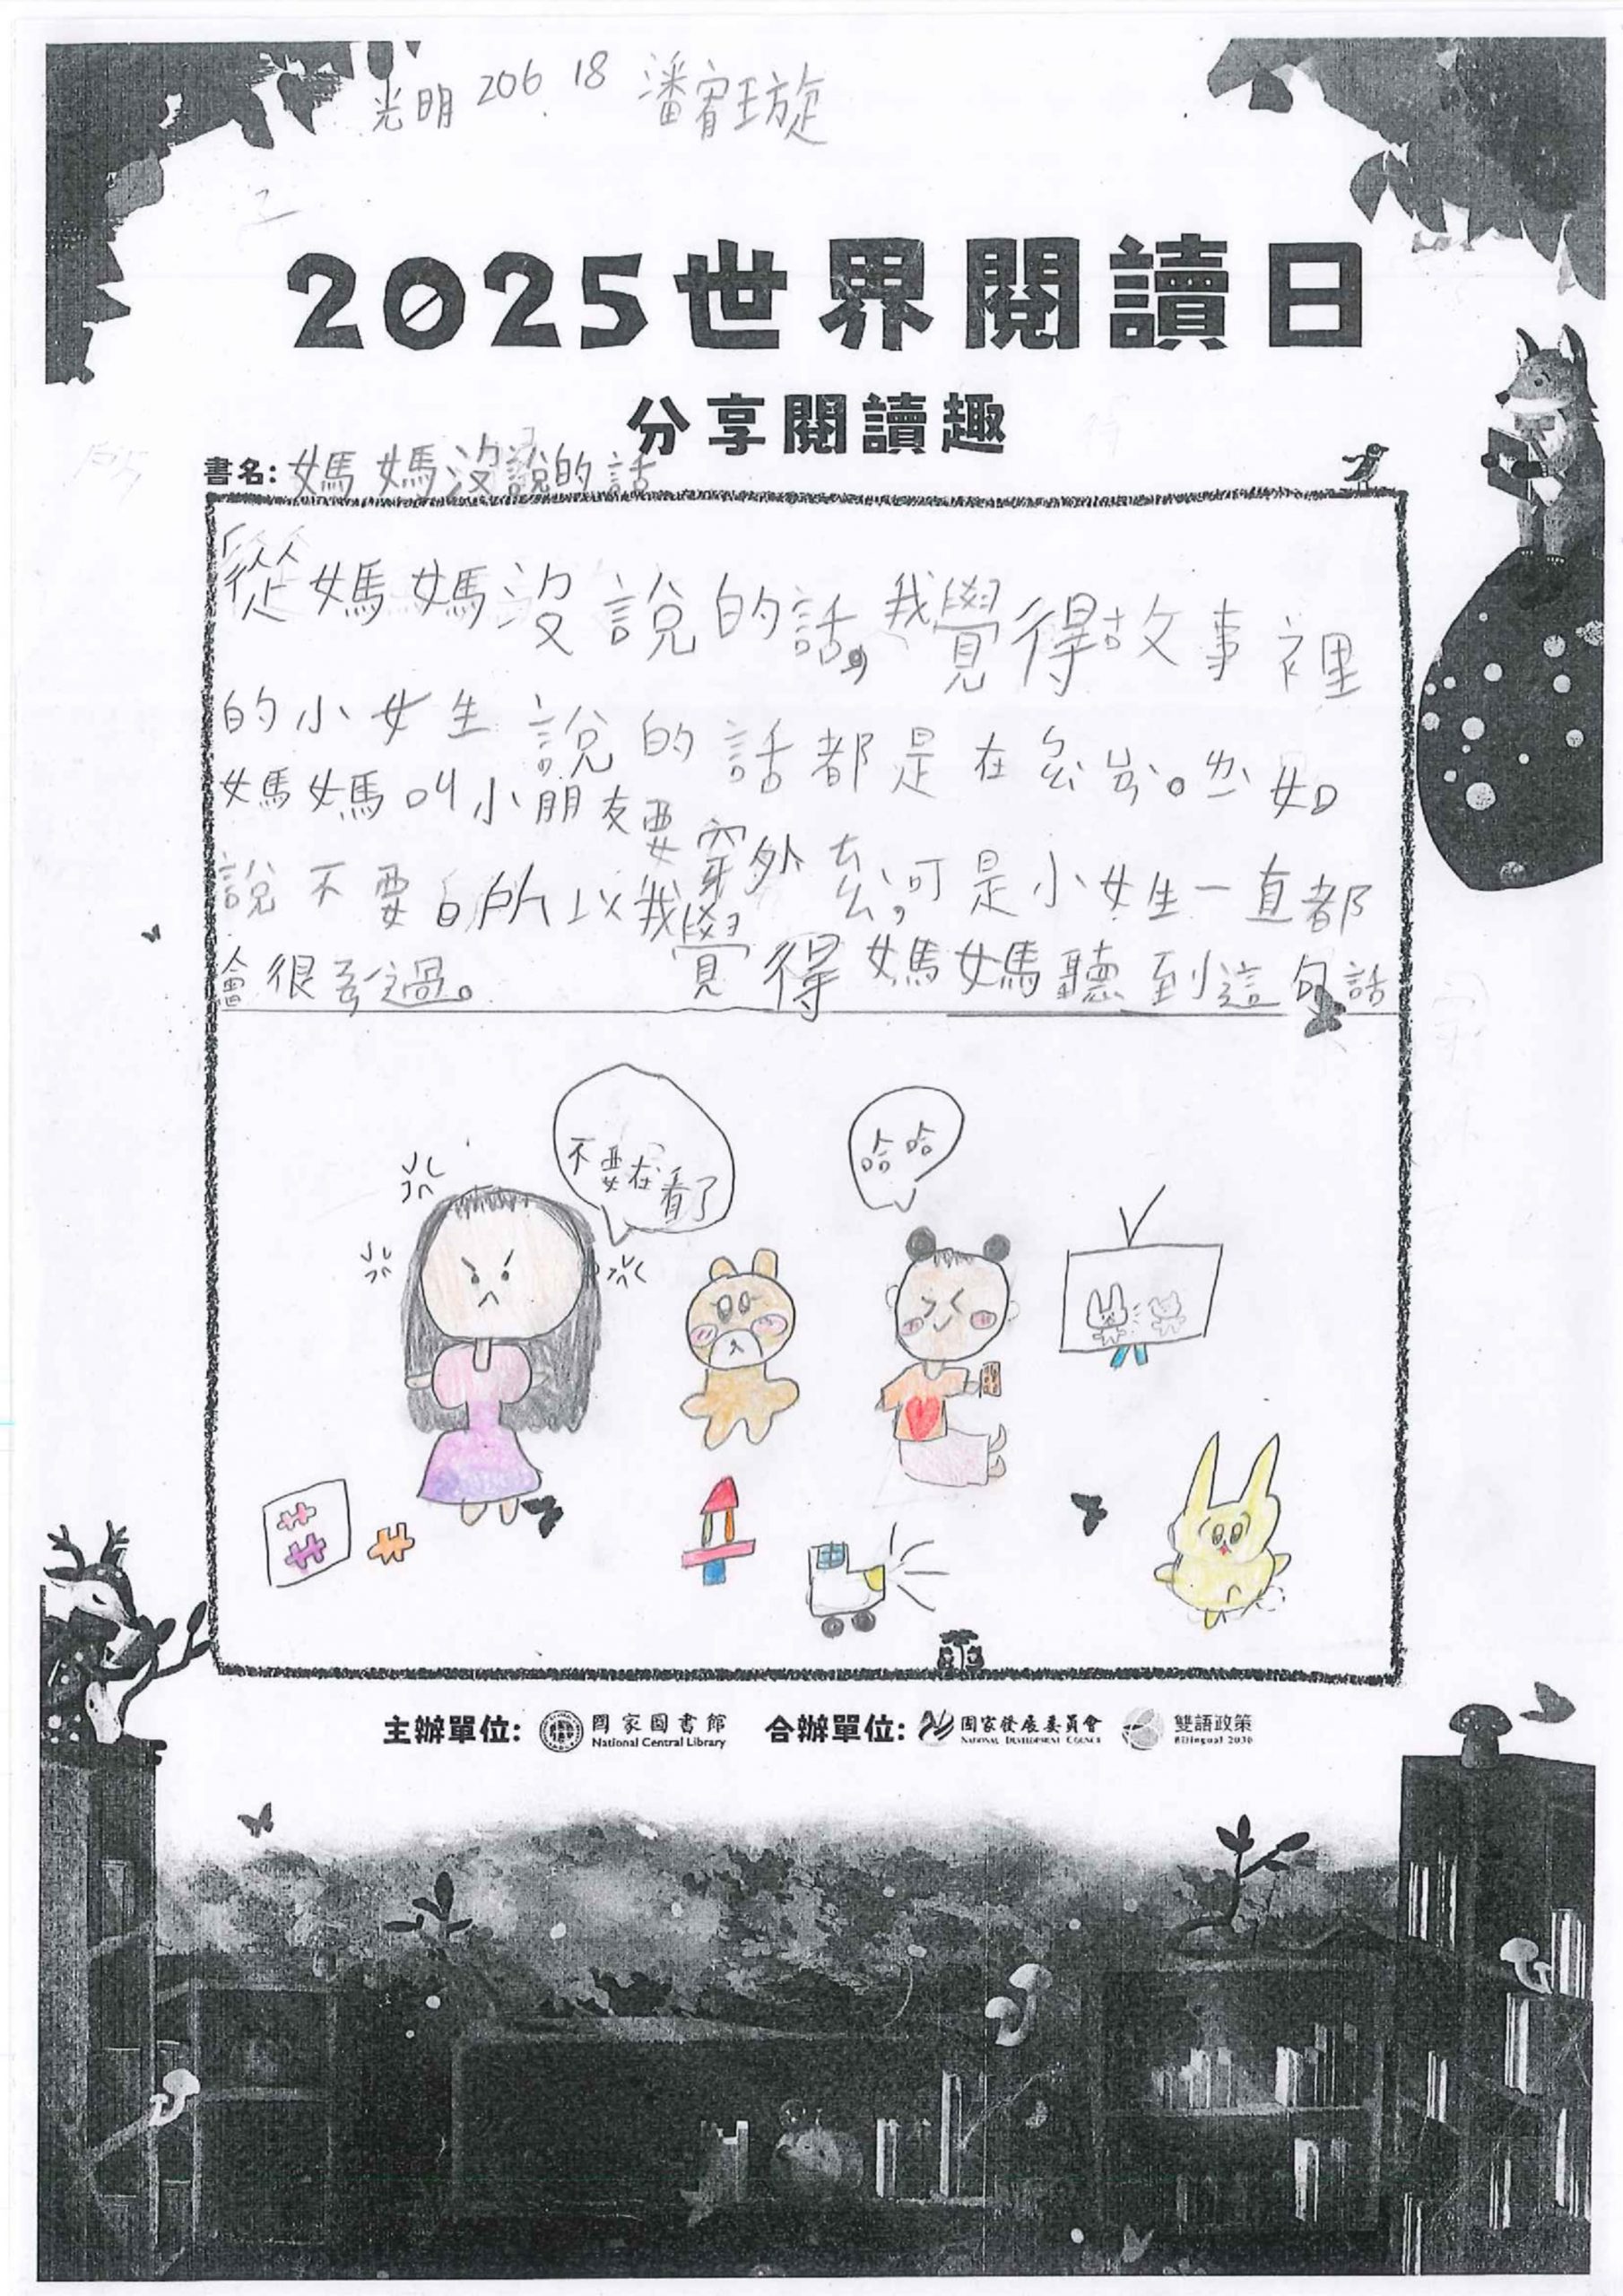 光明 206 18 潘宥璇
2025世界閱讀日
分享閱讀趣
書名: 媽媽沒說的話
從媽媽沒說的話,我覺得故事裡
的小女生說的話都是在ㄠˋㄢˋ。ㄆㄧˋ如
媽媽叫小朋友要穿外ㄊㄠˋ,可是小女生一直都
說不要的所以我覺得媽媽聽到這句話
會很ㄋㄢˊ過。
不要在看了
哈哈
主辦單位: 國家圖書館 National Central Library 合辦單位: 國家發展委員會 National Development Council 雙語政策 Bilingual 2030